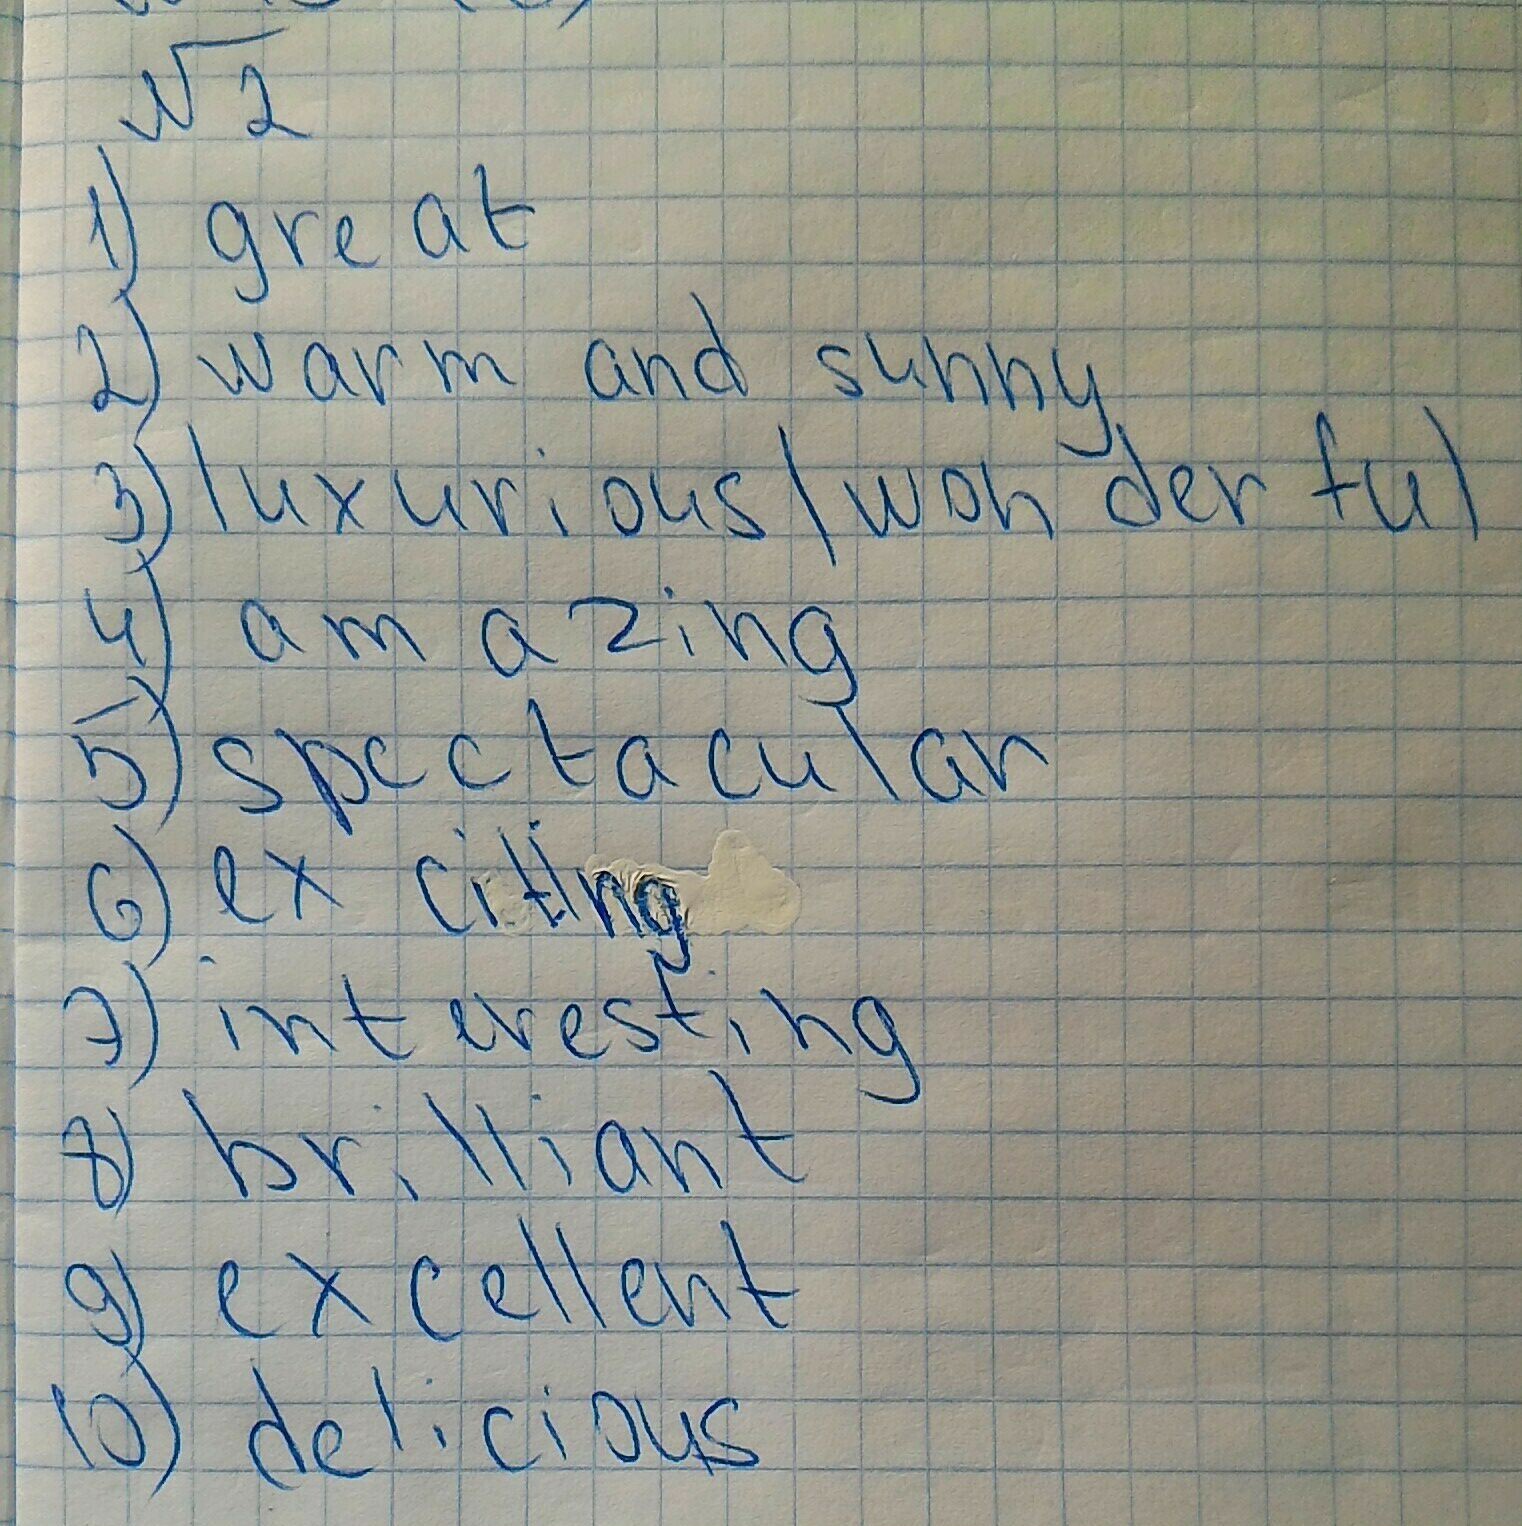 №2
1) great
2) warm and sunny
3) luxurious/wonderful
4) amazing
5) spectacular
6) exciting
7) interesting
8) brilliant
9) excellent
10) delicious